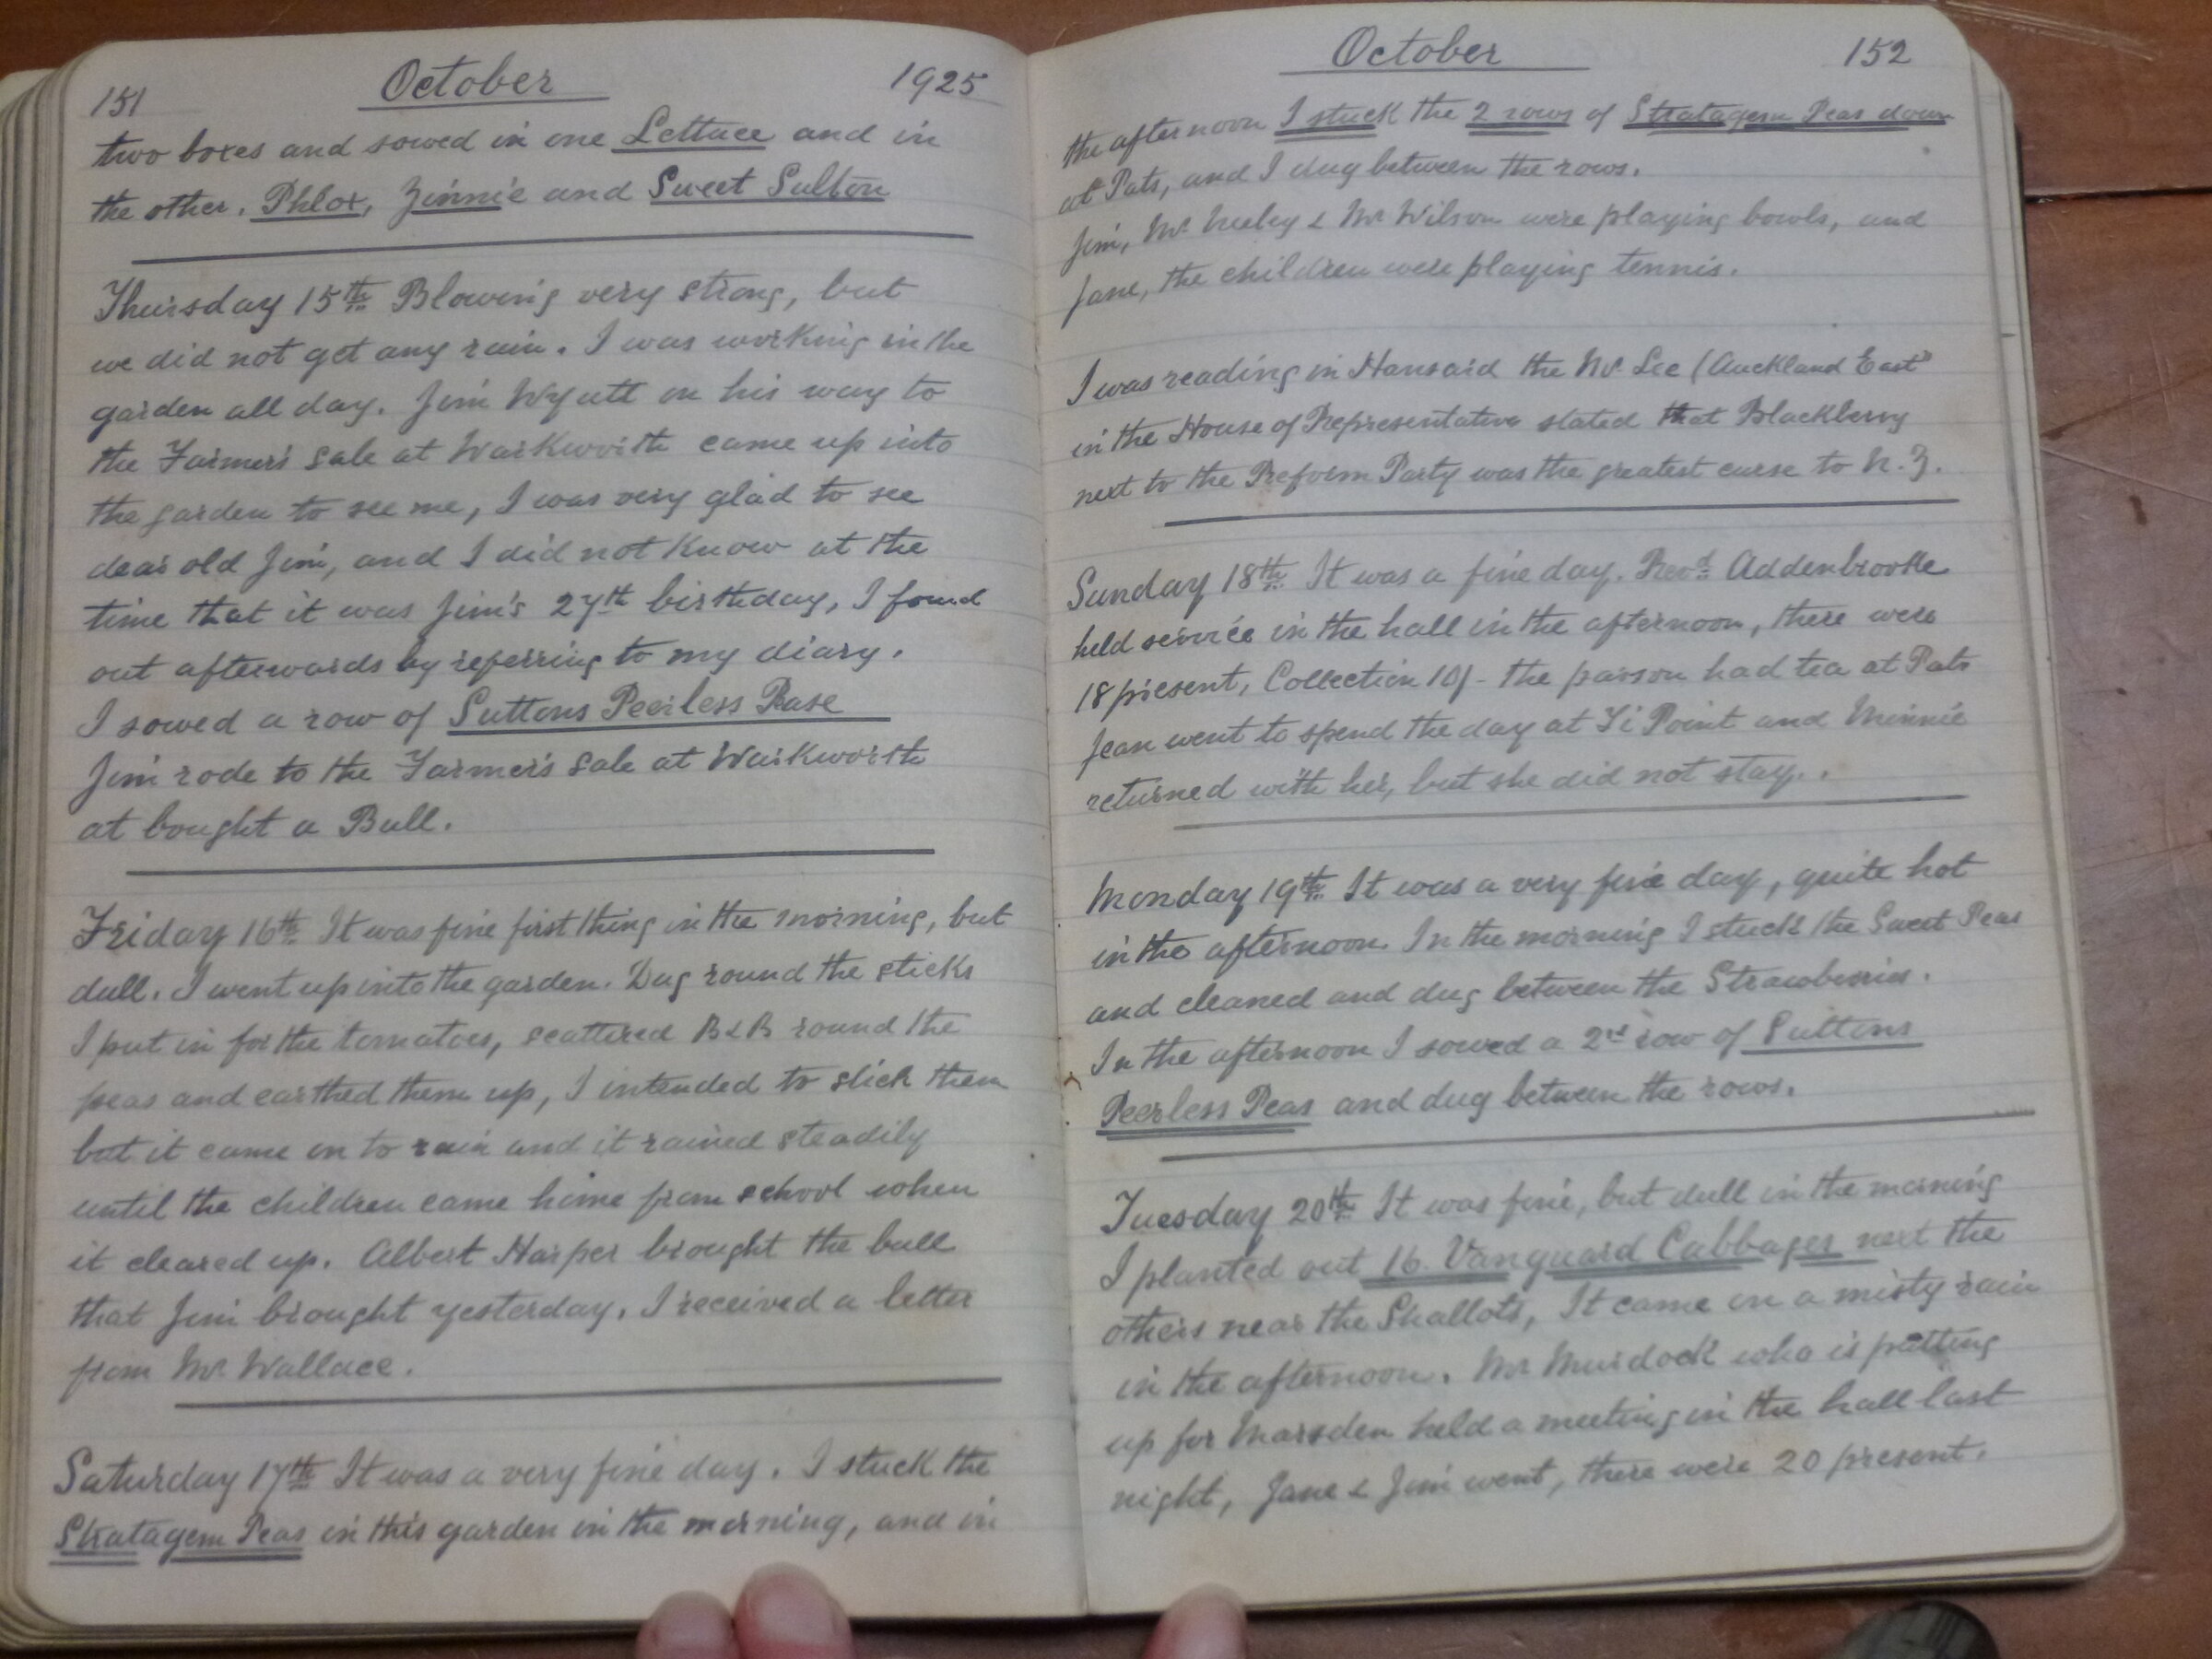 151 October 1925
two boxes and sowed in one Lettuce and in
the other. Phlox, Zinnie and Sweet Sulton
Thursday 15th Blowing very strong, but
we did not get any rain. I was working in the
garden all day. Jim Wyatt on his way to
the Farmer's sale at Warkworth came up into
the garden to see me, I was very glad to see
dear old Jim, and I did not know at the
time that it was Jim's 27th birthday, I found
out afterwards by referring to my diary.
I sowed a row of Suttons Peerless Pease
Jim rode to the Farmer's sale at Warkworth
at bought a Bull.
Friday 16th It was fine first thing in the morning, but
dull. I went up into the garden. Dug round the sticks
I put in for the tomatoes, scattered B & B round the
peas and earthed them up, I intended to stick them
but it came on to rain and it rained steadily
until the children came home from school when
it cleared up. Albert Harper brought the bull
that Jim brought yesterday. I received a letter
from Mr Wallace.
Saturday 17th It was a very fine day. I stuck the
Stratagem Peas in this garden in the morning, and in
October 152
the afternoon I stuck the 2 rows of Stratagem Peas down
at Pats, and I dug between the rows.
Jim, Mr & Mr Wilson were playing bowls, and
Jane, the children were playing tennis.
I was reading in Hansard the Mr Lee (Auckland East"
in the House of Representative stated that Blackberry
next to the Reform Party was the greatest curse to N.Z.
Sunday 18th It was a fine day. Revd Addenbrooke
held service in the hall in the afternoon, there were
18 present, Collection 10/- the parson had tea at Pats
Jean went to spend the day at Ti Point and Minnie
returned with her, but she did not stay.
Monday 19th It was a very fine day, quite hot
in the afternoon. In the morning I stuck the Sweet Peas
and cleaned and dug between the Strawberries.
In the afternoon I sowed a 2nd row of Suttons
Peerless Peas and dug between the rows.
Tuesday 20th It was fine, but dull in the morning
I planted out 16 Vanguard Cabbages next the
others near the Shallots, It came on a misty rain
in the afternoon. Mr Murdock who is putting
up for Marsden held a meeting in the hall last
night, Jane & Jim went, there were 20 present.